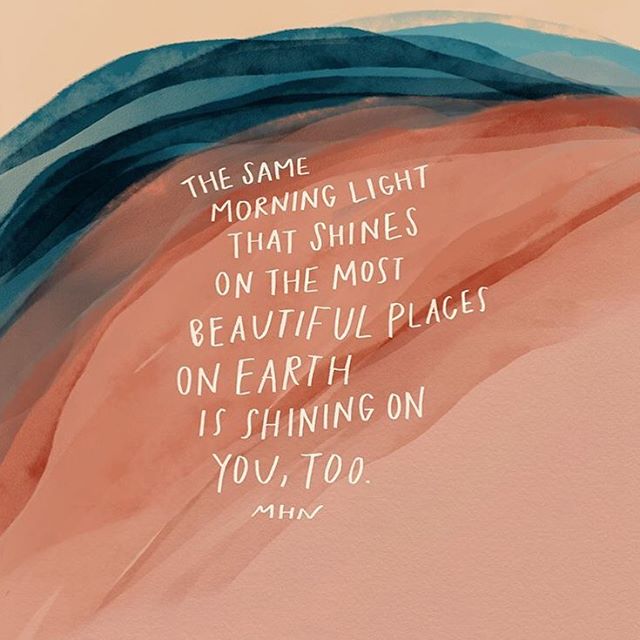 THE SAME
MORNING LIGHT
THAT SHINES
ON THE MOST
BEAUTIFUL PLACES
ON EARTH
IS SHINING ON
YOU, TOO.
MHN